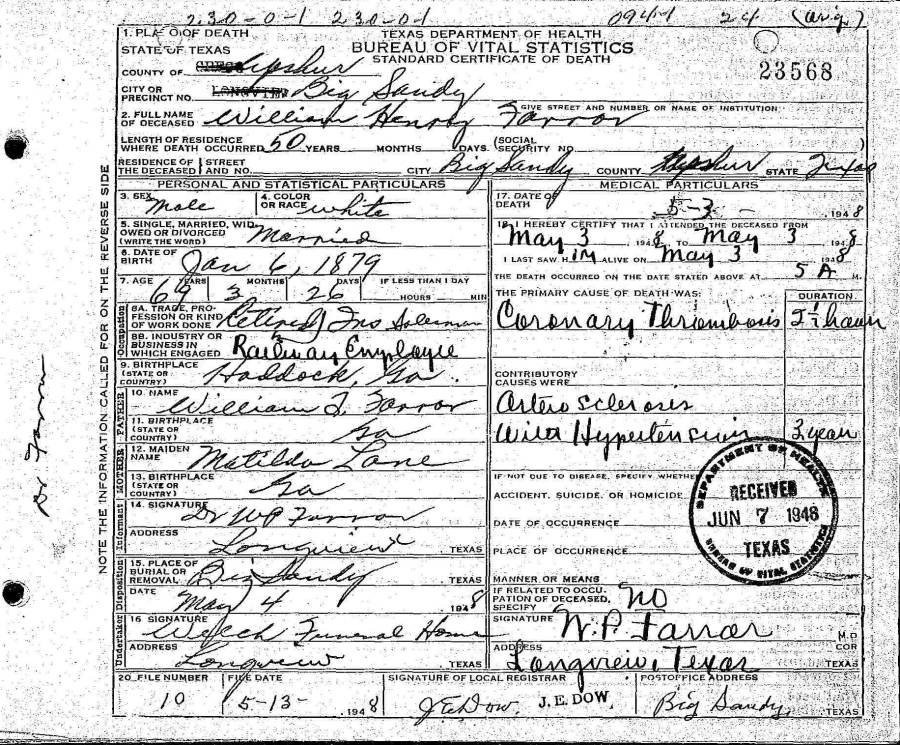 230-0-1 230-0-1 094-1 24 (orig.)
1. PLACE OF DEATH
STATE OF TEXAS
TEXAS DEPARTMENT OF HEALTH
BUREAU OF VITAL STATISTICS
STANDARD CERTIFICATE OF DEATH
23568
COUNTY OF GREGG Upshur
CITY OR PRECINCT NO. LONGVIEW Big Sandy
GIVE STREET AND NUMBER OR NAME OF INSTITUTION
2. FULL NAME OF DECEASED William Henry Farror
LENGTH OF RESIDENCE WHERE DEATH OCCURRED 50 YEARS MONTHS DAYS. (SOCIAL SECURITY NO. )
RESIDENCE OF THE DECEASED STREET AND NO. CITY Big Sandy COUNTY Upshur STATE Texas
PERSONAL AND STATISTICAL PARTICULARS
3. SEX Male
4. COLOR OR RACE white
5. SINGLE, MARRIED, WIDOWED OR DIVORCED (WRITE THE WORD) Married
6. DATE OF BIRTH Jan 6, 1879
7. AGE 69 YEARS 3 MONTHS 26 DAYS IF LESS THAN 1 DAY HOURS MIN
8A. TRADE, PROFESSION OR KIND OF WORK DONE Retired Ins Salesman
8B. INDUSTRY OR BUSINESS IN WHICH ENGAGED Railway Employee
9. BIRTHPLACE (STATE OR COUNTRY) Haddock, Ga.
FATHER
10. NAME William J. Farror
11. BIRTHPLACE (STATE OR COUNTRY) Ga
MOTHER
12. MAIDEN NAME Matilda Lane
13. BIRTHPLACE (STATE OR COUNTRY) Ga
Informant
14. SIGNATURE Dr WP Farror
ADDRESS Longview TEXAS
Disposition
15. PLACE OF BURIAL OR REMOVAL Big Sandy, TEXAS
DATE May 4 1948
Undertaker
16 SIGNATURE Welch Funeral Home
ADDRESS Longview, TEXAS
MEDICAL PARTICULARS
17. DATE OF DEATH 5-3- , 1948
18. I HEREBY CERTIFY THAT I ATTENDED THE DECEASED FROM
May 3 1948 TO May 3 1948
I LAST SAW HIM ALIVE ON May 3 1948
THE DEATH OCCURRED ON THE DATE STATED ABOVE AT 5 A M.
THE PRIMARY CAUSE OF DEATH WAS: DURATION
Coronary Thrombosis
CONTRIBUTORY CAUSES WERE
Artero sclerosis
With Hypertension
IF NOT DUE TO DISEASE, SPECIFY WHETHER
ACCIDENT, SUICIDE, OR HOMICIDE
DATE OF OCCURRENCE
PLACE OF OCCURRENCE
MANNER OR MEANS
IF RELATED TO OCCUPATION OF DECEASED, SPECIFY NO
SIGNATURE W. P. Farrar M.D
ADDRESS Longview, Texas COR TEXAS
DEPARTMENT OF HEALTH
RECEIVED
JUN 7 1948
TEXAS
BUREAU OF VITAL STATISTICS
20 FILE NUMBER 10
FILE DATE 5-13- , 1948
SIGNATURE OF LOCAL REGISTRAR J.E.Dow. J.E.DOW,
POSTOFFICE ADDRESS Big Sandy, TEXAS
NOTE THE INFORMATION CALLED FOR ON THE REVERSE SIDE
Occupation
Dr Farror